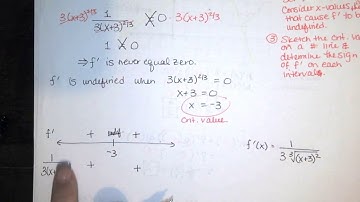 3(x+3)^{2/3} \frac{1}{3(x+3)^{2/3}} ≠ 0 · 3(x+3)^{2/3}
1 ≠ 0
⇒ f' is never equal zero.
f' is undefined when 3(x+3)^{2/3} = 0
x+3 = 0
x = -3
Crit. value
Consider x-values
that cause f' to
undefined.
③ Sketch the Crit. v
on a # line &
determine the sign
of f' on each
interval.
f' + undf +
-3
\frac{1}{3(x+ + +
f'(x) = \frac{1}{3\sqrt[3]{(x+3)^2}}